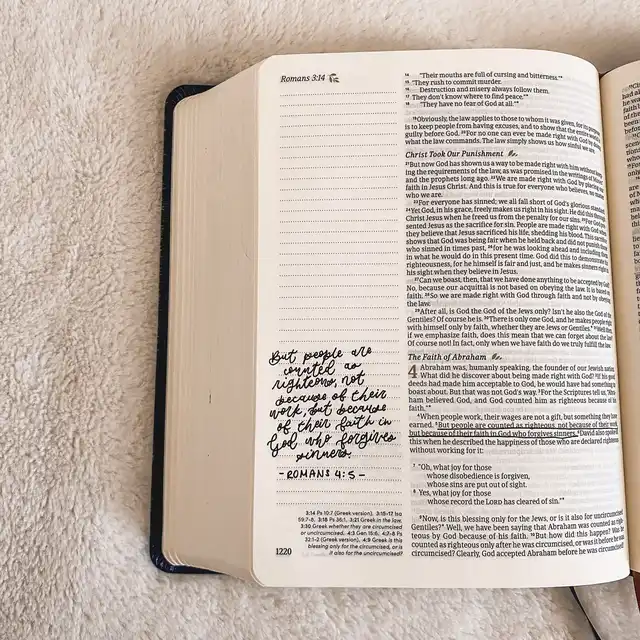 Romans 3:14
14 "Their mouths are full of cursing and bitterness."*
15 "They rush to commit murder.
16 Destruction and misery always follow them.
17 They don't know where to find peace."*
18 "They have no fear of God at all."*
19 Obviously, the law applies to those to whom it was given, for its purpose
is to keep people from having excuses, and to show that the entire world
guilty before God. 20 For no one can ever be made right with God by doing
what the law commands. The law simply shows us how sinful we
Christ Took Our Punishment
21 But now God has shown us a way to be made right with him without keep-
ing the requirements of the law, as was promised in the writings of Moses
and the prophets long ago. 22 We are made right with God by placing our
faith in Jesus Christ. And this is true for everyone who believes, no matter
who we are.
23 For everyone has sinned; we all fall short of God's glorious standard.
24 Yet God, in his grace, freely makes us right in his sight. He did this through
Christ Jesus when he freed us from the penalty for our sins. 25 For God pre-
sented Jesus as the sacrifice for sin. People are made right with God when
they believe that Jesus sacrificed his life, shedding his blood. This sacrifice
shows that God was being fair when he held back and did not punish those
who sinned in times past, 26 for he was looking ahead and including them
in what he would do in this present time. God did this to demonstrate his
righteousness, for he himself is fair and just, and he makes sinners right in
his sight when they believe in Jesus.
27 Can we boast, then, that we have done anything to be accepted by God?
No, because our acquittal is not based on obeying the law. It is based on
faith. 28 So we are made right with God through faith and not by obeying
the law.
29 After all, is God the God of the Jews only? Isn't he also the God of the
Gentiles? Of course he is. 30 There is only one God, and he makes people right
with himself only by faith, whether they are Jews or Gentiles.* 31 Well then,
if we emphasize faith, does this mean that we can forget about the law?
Of course not! In fact, only when we have faith do we truly fulfill the law.
The Faith of Abraham
4 Abraham was, humanly speaking, the founder of our Jewish nation.
What did he discover about being made right with God? 2 If his good
deeds had made him acceptable to God, he would have had something to
boast about. But that was not God's way. 3 For the Scriptures tell us, "Abra-
ham believed God, and God counted him as righteous because of his
faith."*
4 When people work, their wages are not a gift, but something they have
earned. 5 But people are counted as righteous, not because of their work,
but because of their faith in God who forgives sinners. 6 David also spoke of
this when he described the happiness of those who are declared righteous
without working for it:
7 "Oh, what joy for those
whose disobedience is forgiven,
whose sins are put out of sight.
8 Yes, what joy for those
whose record the LORD has cleared of sin."*
9 Now, is this blessing only for the Jews, or is it also for uncircumcised
Gentiles?* Well, we have been saying that Abraham was counted as righ-
teous by God because of his faith. 10 But how did this happen? Was he
counted as righteous only after he was circumcised, or was it before he was
circumcised? Clearly, God accepted Abraham before he was circumcised!
But people are
counted as
righteous, not
because of their
work, but because
of their faith in
God who forgives
sinners.
- ROMANS 4:5 -
3:14 Ps 10:7 (Greek version). 3:15-17 Isa
59:7-8. 3:18 Ps 36:1. 3:21 Greek in the law.
3:30 Greek whether they are circumcised
or uncircumcised. 4:3 Gen 15:6. 4:7-8 Ps
32:1-2 (Greek version). 4:9 Greek is this
blessing only for the circumcised, or is
it also for the uncircumcised?
1220